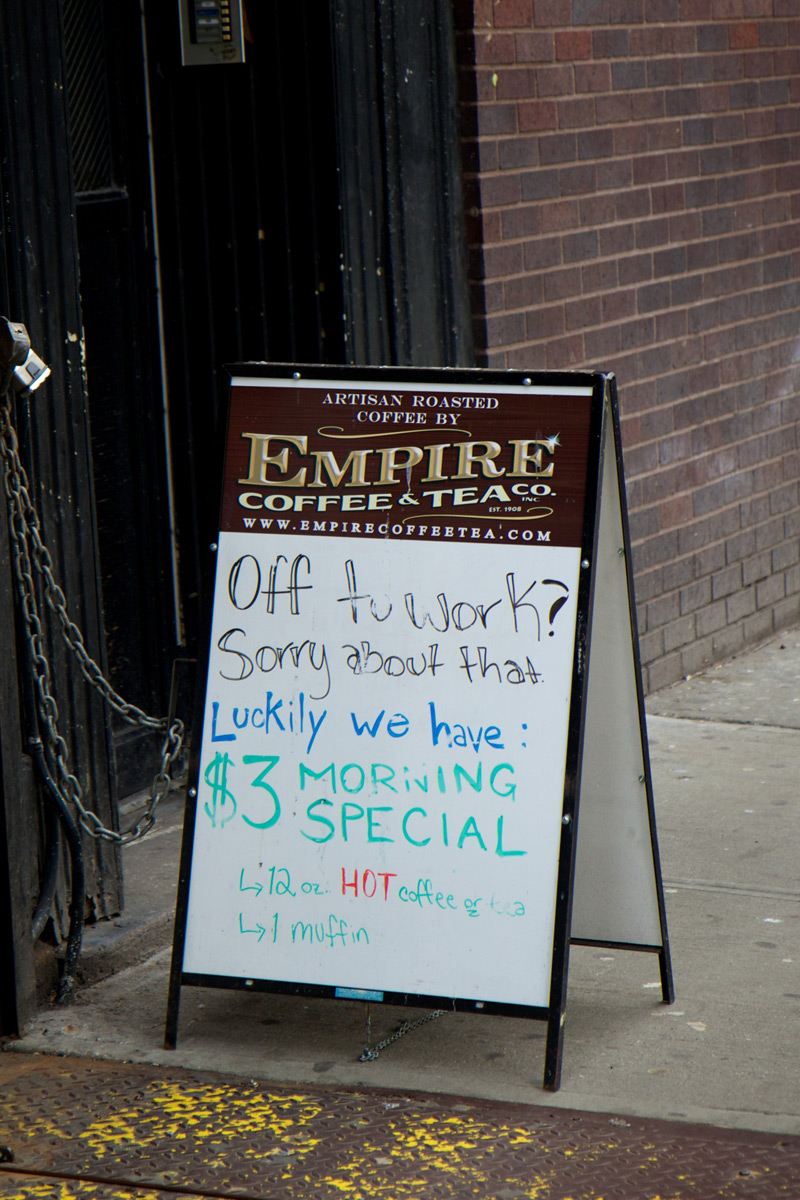 ARTISAN ROASTED
COFFEE BY
EMPIRE
COFFEE & TEA CO.
INC
EST. 1908
WWW.EMPIRECOFFEETEA.COM
Off to work?
Sorry about that.
Luckily we have:
$3 MORNING
SPECIAL
↳ 12 oz. HOT coffee or tea
↳ 1 muffin